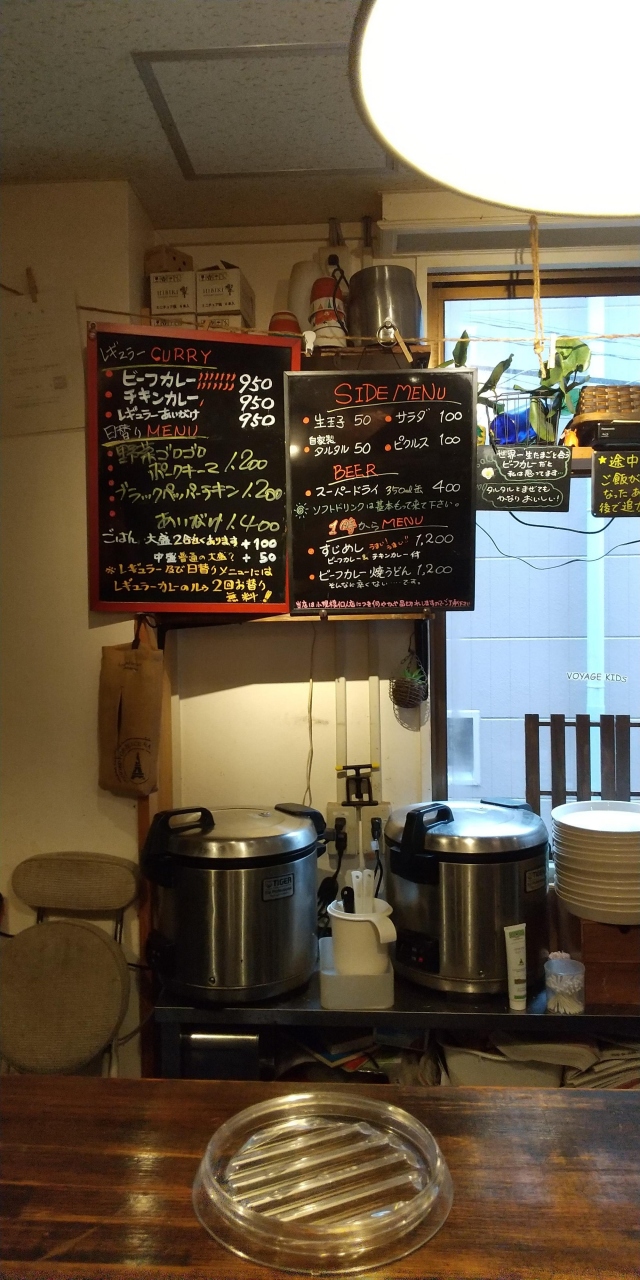 レギュラー CURRY
ビーフカレー 950
チキンカレー 950
レギュラーあいがけ 950
日替り MENU
野菜ゴロゴロ
ポークキーマ 1.200
ブラックペッパーチキン 1.200
あいがけ 1.400
ごはん 大盛 2合近くあります +100
中盛 普通の大盛で + 50
※レギュラー及び日替りメニューには
レギュラーカレーのルゥ 2回お替り
無料!
SIDE MENU
生玉子 50
サラダ 100
自家製
タルタル 50
ピクルス 100
BEER
スーパードライ 350ml缶 400
ソフトドリンクは基本もって来て下さい。
1時から MENU
すじめし うまい!うまい!! 1,200
ビーフカレー & チキンカレー 付
ビーフカレー焼うどん 1,200
そんなに辛くない…です。
世界一生たまごと合う
ビーフカレーだと
私は思ってます
タルタルとまぜても
かなりおいしい!
★途中
ご飯が
なったあ
後で追
VOYAGE KIDs
HIBIKI
響
TIGER